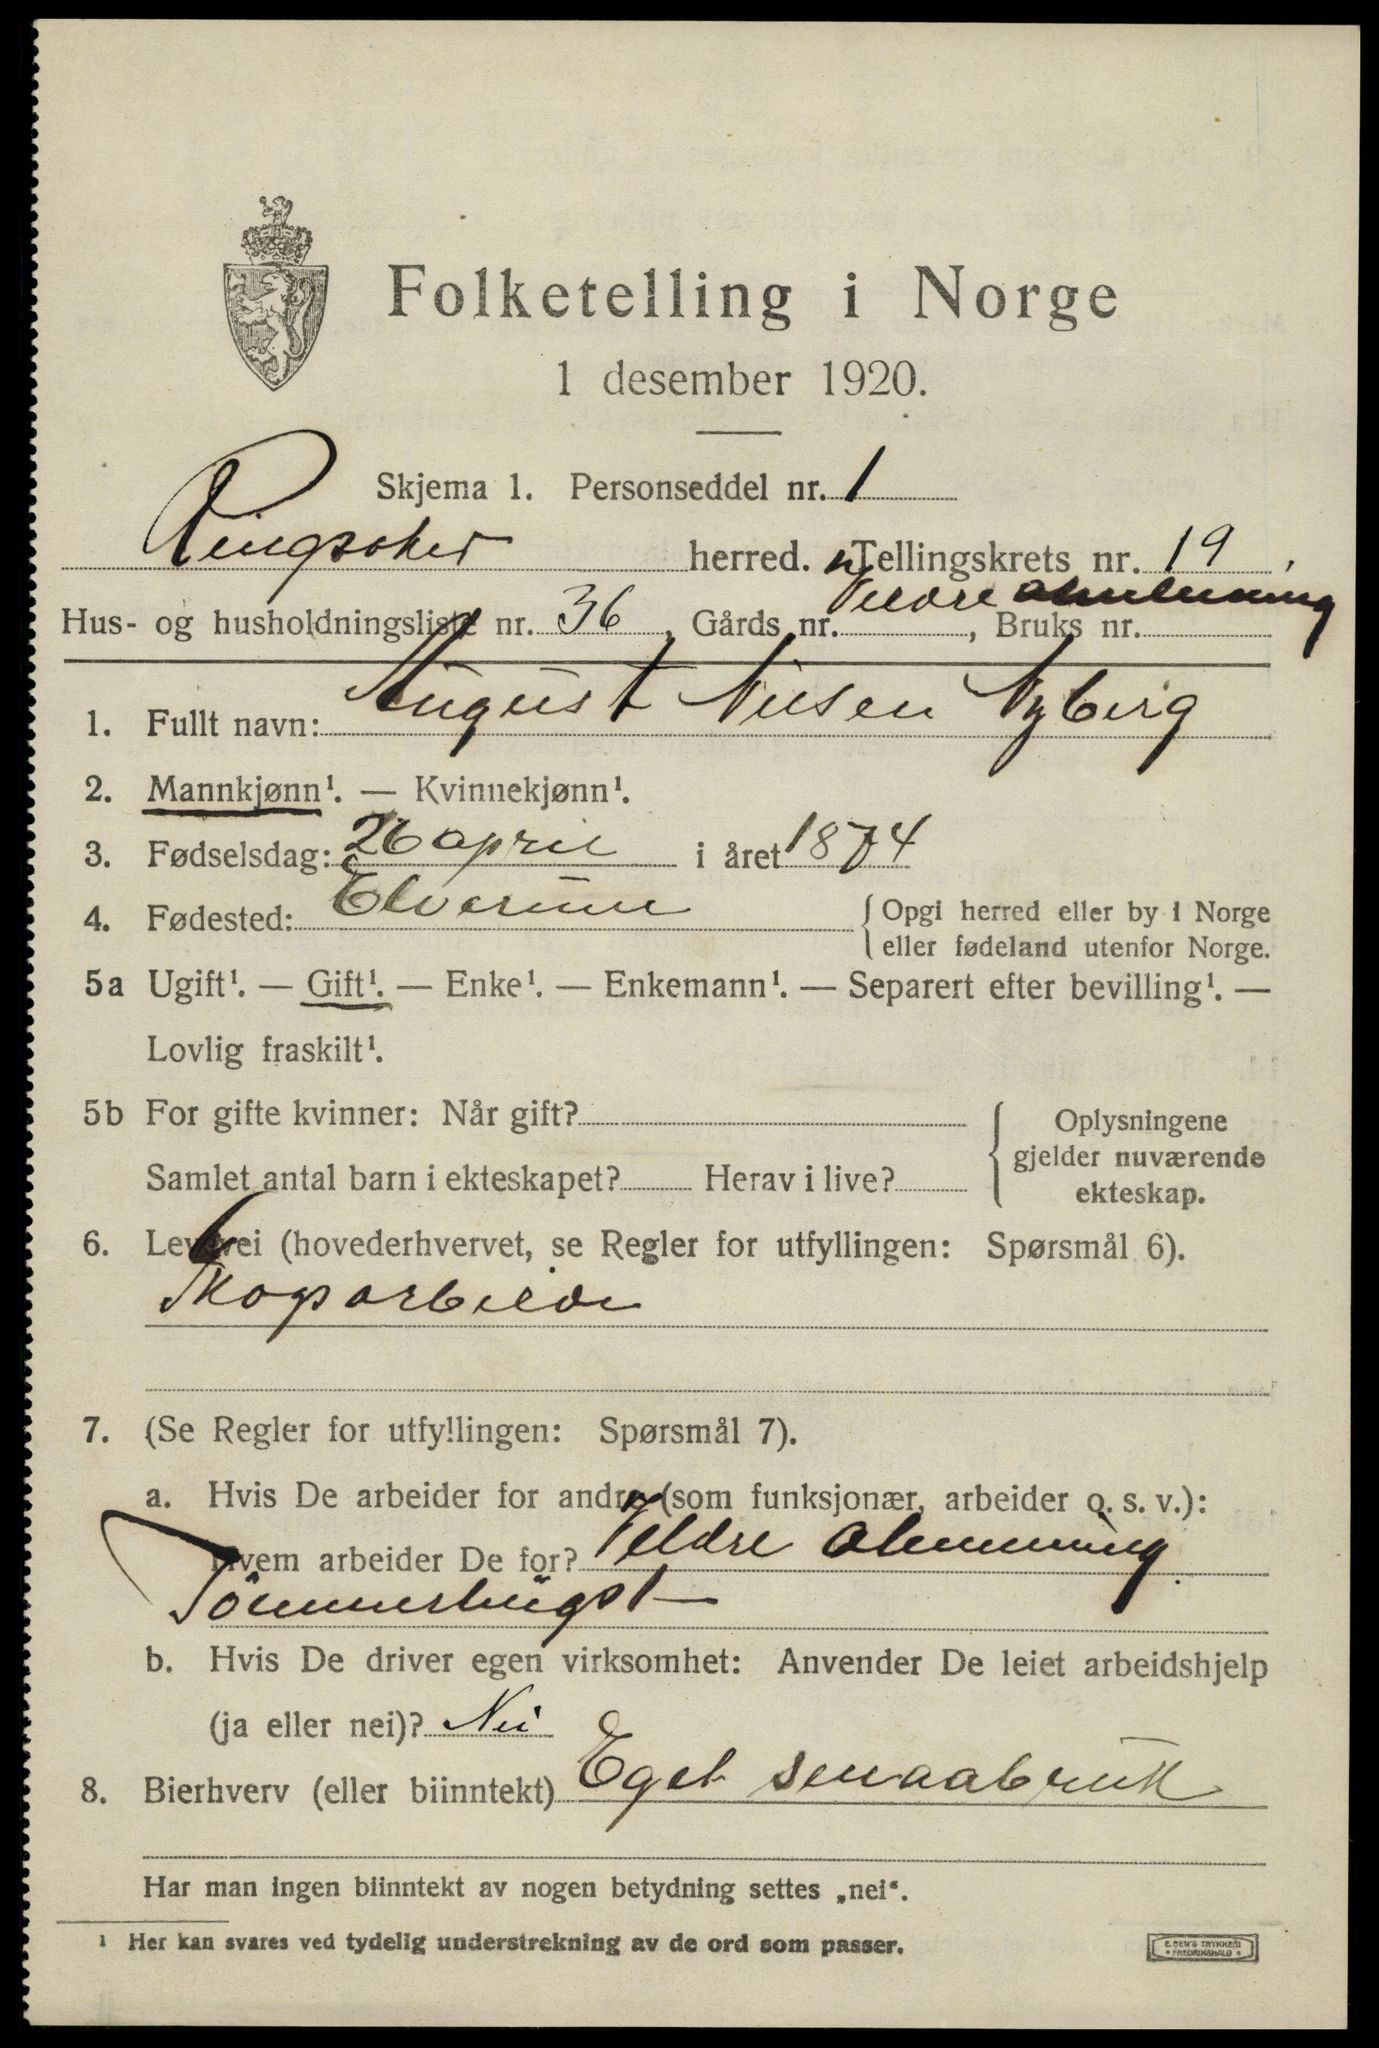 Folketelling i Norge
1 desember 1920.
Skjema 1. Personseddel nr. 1
Ringsaker herred. Tellingskrets nr. 19
Veldre almenning
Hus- og husholdningsliste nr. 36, Gårds nr. , Bruks nr.
1. Fullt navn: August Nilsen Nyberg
2. Mannkjønn¹. — Kvinnekjønn¹.
3. Fødselsdag: 26 april i året 1874
4. Fødested: Elverum { Opgi herred eller by i Norge
eller fødeland utenfor Norge.
5a Ugift¹. — Gift¹. — Enke¹. — Enkemann¹. — Separert efter bevilling¹. —
Lovlig fraskilt¹.
5b For gifte kvinner: Når gift? { Oplysningene
gjelder nuværende
Samlet antal barn i ekteskapet? Herav i live?
ekteskap.
6. Levevei (hovederhvervet, se Regler for utfyllingen: Spørsmål 6).
Skogsarbeide
7. (Se Regler for utfyllingen: Spørsmål 7).
a. Hvis De arbeider for andre (som funksjonær, arbeider o. s. v.):
Hvem arbeider De for? Veldre almenning
Tömmerhugst
b. Hvis De driver egen virksomhet: Anvender De leiet arbeidshjelp
(ja eller nei)? Nei
8. Bierhverv (eller biinntekt) Eget smaabruk
Har man ingen biinntekt av nogen betydning settes „nei“.
¹ Her kan svares ved tydelig understrekning av de ord som passer.
E. SEM'S TRYKKERI
• FREDRIKSHALD •